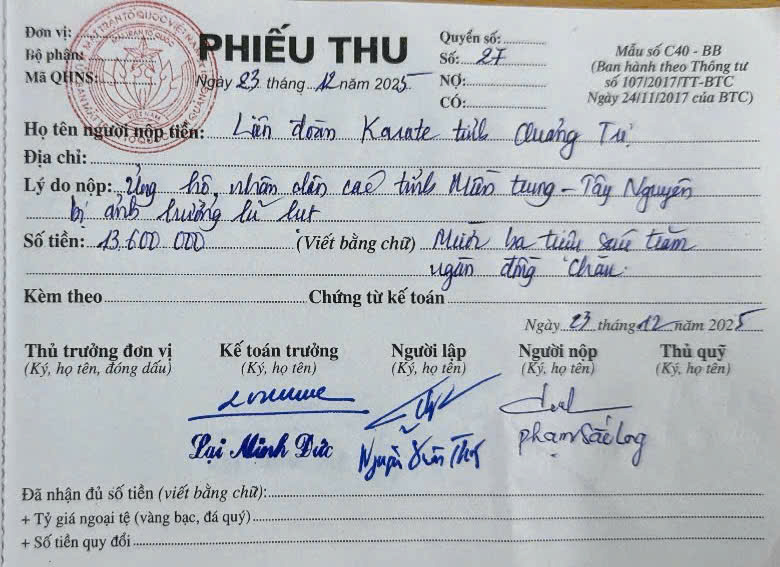 Đơn vị:
Bộ phận:
Mã QHNS:
MẶT TRẬN TỔ QUỐC VIỆT NAM
MẶT TRẬN TỔ QUỐC
VIỆT NAM
PHIẾU THU
Ngày 23 tháng 12 năm 2025
Quyển số:
Số: 27
NỢ:
CÓ:
Mẫu số C40 - BB
(Ban hành theo Thông tư
số 107/2017/TT-BTC
Ngày 24/11/2017 của BTC)
Họ tên người nộp tiền: Liên đoàn Karate tỉnh Quảng Trị
Địa chỉ:
Lý do nộp: Ủng hộ nhân dân các tỉnh Miền trung - Tây Nguyên
bị ảnh hưởng lũ lụt
Số tiền: 13 600 000 (Viết bằng chữ) Mười ba triệu sáu trăm
ngàn đồng chẵn.
Kèm theo Chứng từ kế toán
Ngày 23 tháng 12 năm 2025
Thủ trưởng đơn vị Kế toán trưởng Người lập Người nộp Thủ quỹ
(Ký, họ tên, đóng dấu) (Ký, họ tên) (Ký, họ tên) (Ký, họ tên) (Ký, họ tên)
Lại Minh Đức Nguyễn Xuân Phạm Sắc Long
Đã nhận đủ số tiền (viết bằng chữ):
+ Tỷ giá ngoại tệ (vàng bạc, đá quý)
+ Số tiền quy đổi